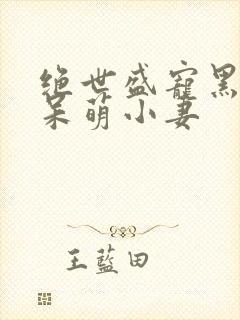 绝世盛宠黑
呆萌小妻
王藍田